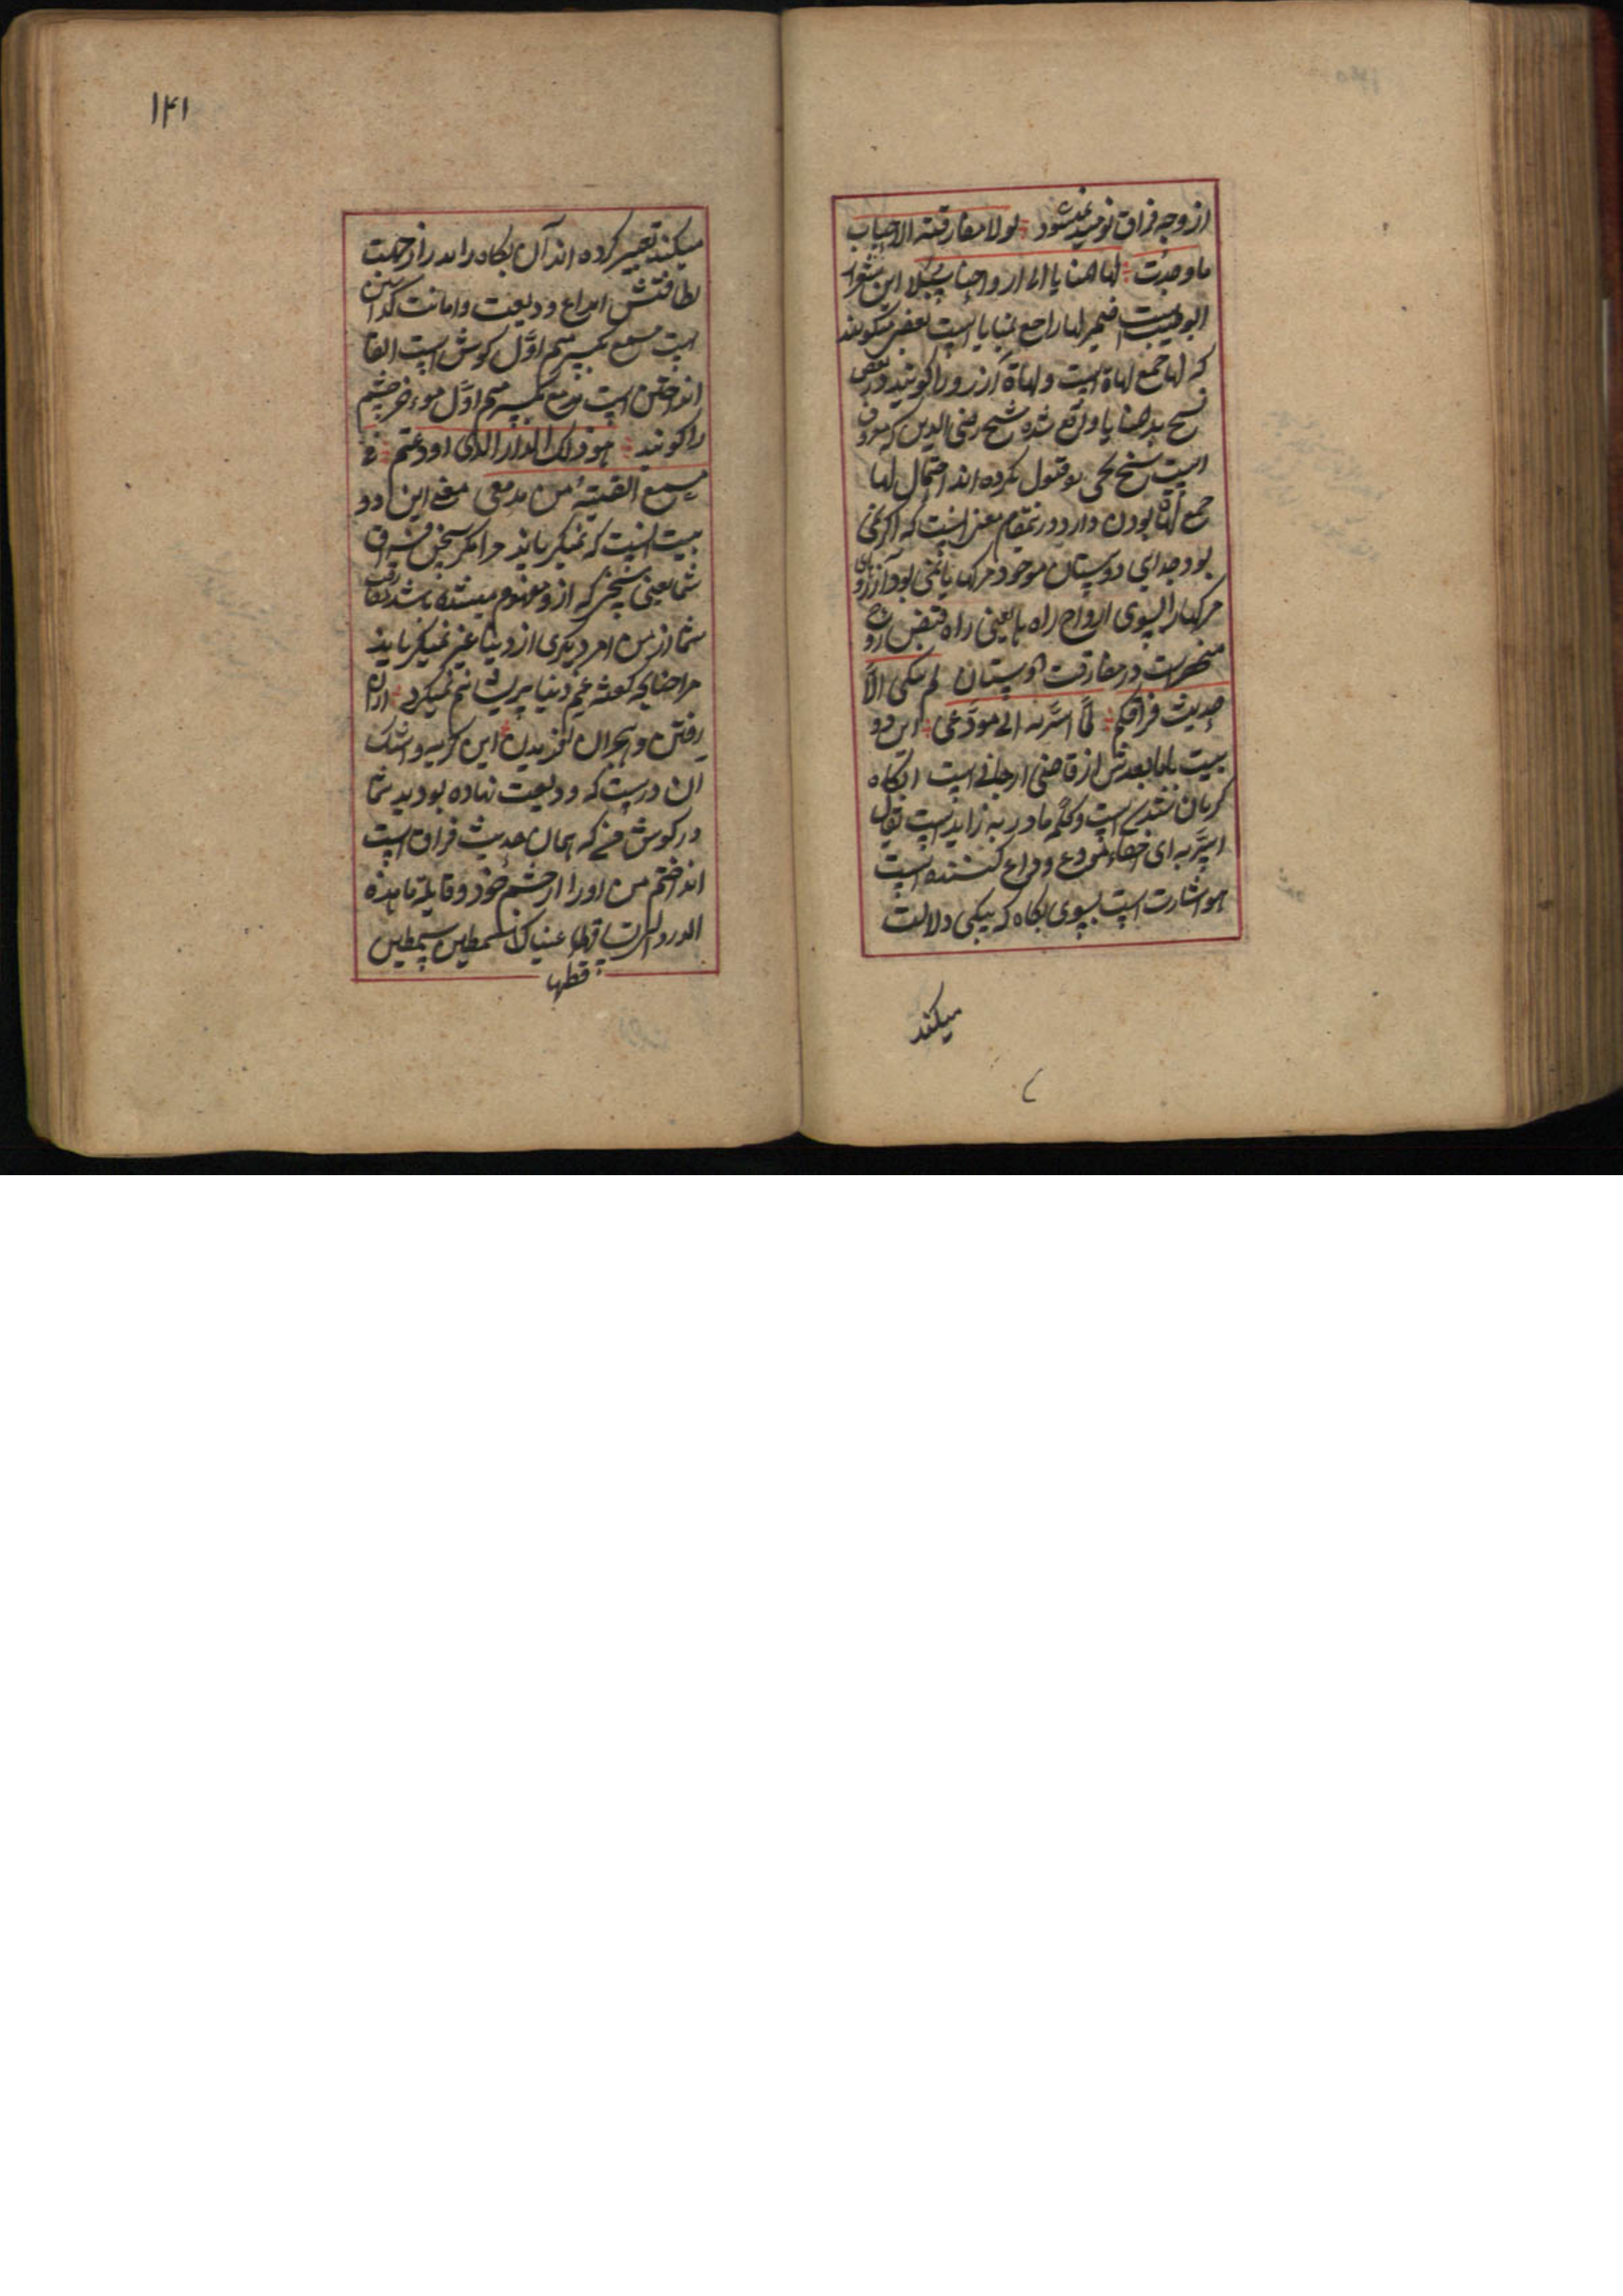 از وجه فراق نومید نمیشود لولا مفارقة الاحباب
ما وجدت لها المنایا الی ارواحنا سبلا این شعر از
ابو طیب است ضمیر لها راجع بمنایا است بعضی میگویند
که لها جمع لهاة است و لهاة آرزو را گویند در بعض
نسخ ید المنایا واقع شده شیخ رضی الدین که معروف
است بشیخ نحوی قبول نکرده اند احتمال لها
جمع لهاة بودن دارد درینمقام معنی اینست که اگر نمی
بود جدای دوستان موجود مرکها یا نمی بود آرزوهای
مرکها را بسوی ارواح راه ها یعنی راه قبض روح
منحصرست در مفارقت دوستان لم یبکنی الا
حدیث فراقکم لما اسر به الی مودعی این دو
بیت با ما بعدش از قاضی ارجانی است ابکاه
گریان شدن است و کلمه ما در به زایدست یقال
اسر به ای اخفاه مودع وداع کننده است
هو اشارت است بسوی بکاه که یبکی دلالت
میکند
۱۴۱
میکند تعبیر کرده اند آن بکاه را بدر از جهت
لطافتش ایداع ودیعت و امانت گذاشتن
است مسمع بکسر میم اول گوش است القا
انداختن است مدمع بکسر میم اول موخر چشم
را گویند هو ذلک الدر الذی اودعتم فی
مسمعی القیته من مدمعی معنی این دو
بیت اینست که نمیگریاند مرا مگر سخن فراق
شما یعنی سخنی که ازو مفهوم میشده باشد مفارقت
شما از من امر دیگری از دنیا غیر نمیگریاند
مرا چنانچه گفته غم دنیا پریشانم نمیکرد
رفتن و هجران گزیدن این گریه و اشک
آن درست که ودیعت نهاده بودید شما
در گوش من که همان حدیث فراق است
انداختم من او را از چشم خود و قایلة ما هذه
الدرر التی تساقطها عیناک سمطین سمطین
قطها